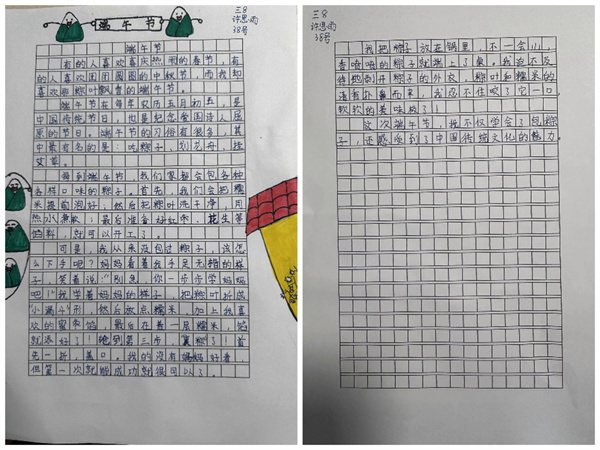 端午节
三8
许思雨
38号
端午节
有的人喜欢喜庆热闹的春节，有
的人喜欢团团圆圆的中秋节，而我却
喜欢粽叶飘香的端午节。
端午节在每年农历五月初五，是
中国传统节日，也是纪念爱国诗人屈
原的节日。端午节的习俗有很多，其
中最有名的是：吃粽子，划龙舟，挂
艾草。
每到端午节，我们家都会包各种
各样口味的粽子。首先，我们会把糯
米提前泡好，然后把粽叶洗干净，用
热水煮，最后准备好红枣、花生等
馅料，就可以开工了。
可是，我从来没包过粽子，该怎
么下手呢？妈妈看着我手足无措的样
子，笑着说：“别急，你一步步学妈妈
吧！”我学着妈妈的样子，把粽叶折成
小漏斗形，然后放点糯米，加上我喜
欢的蜜枣馅，最后在盖一层糯米，馅
就添好了！绝到第三步，裹粽了！首
先一折，盖口。我的没有妈妈好看，
但第一次就能成功就很可以了！
三8
许思雨
38号
我把粽子放在锅里，不一会儿，
香喷喷的粽子就端上了桌。我迫不及
待地剥开粽子的外衣，粽叶和糯米的
清香扑鼻而来，我忍不住咬了它一口，
软软的美味极了！
这次端午节，我不仅学会了包粽
子，还感受到了中国传统文化的魅力。